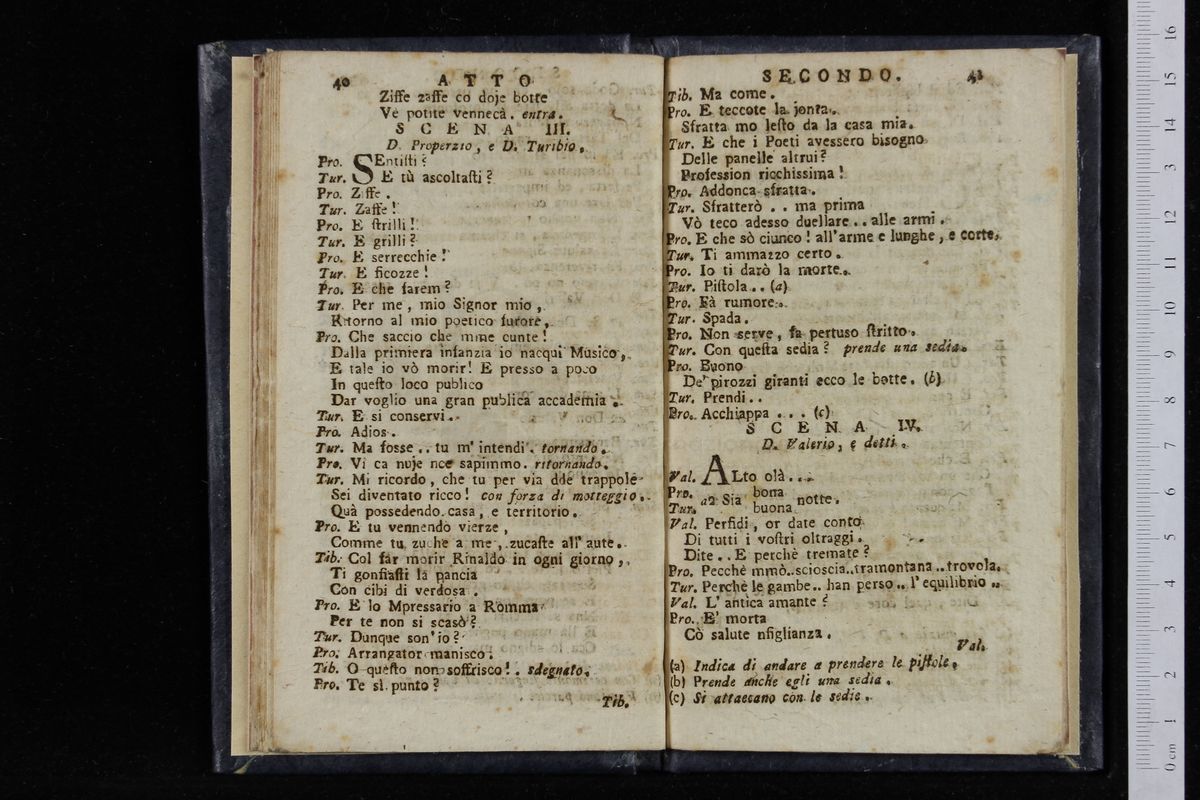 40 ATTO
Ziffe zaffe co doje botte
Ve potite vennecà. entra.
SCENA III.
D. Properzio, e D. Turibio.
Pro. SEntiſti?
Tur. E tù aſcoltaſti?
Pro. Ziffe.
Tur. Zaffe!
Pro. E ſtrilli!
Tur. E grilli?
Pro. E serrecchie!
Tur. E ficozze!
Pro. E che farem?
Tur. Per me, mio Signor mio,
Ritorno al mio poetico furore,
Pro. Che saccio che mme cunte!
Dalla primiera infanzia io nacqui Musico,
E tale io vò morir! E presso a poco
In queſto loco publico
Dar voglio una gran publica accademia.
Tur. E si conservi.
Pro. Adios.
Tur. Ma fosse.. tu m' intendi. tornando.
Pro. Vi ca nuje nce sapimmo. ritornando.
Tur. Mi ricordo, che tu per via dde trappole
Sei diventato ricco! con forza di motteggio.
Quà possedendo casa, e territorio.
Pro. E tu vennendo vierze,
Comme tu zuche a me, zucaſte all' aute.
Tib. Col far morir Rinaldo in ogni giorno,
Ti gonfiaſti la pancia
Con cibi di verdosa.
Pro. E lo Mpressario a Romma
Per te non si scasò?
Tur. Dunque son' io?
Pro. Arrangator manisco!
Tib. O queſto non soffrisco!. sdegnato.
Pro. Te sì punto?
Tib.
SECONDO. 41
Tib. Ma come.
Pro. E teccote la jonta.
Sfratta mo leſto da la casa mia.
Tur. E che i Poeti avessero bisogno
Delle panelle altrui?
Profession ricchissima!
Pro. Addonca sfratta.
Tur. Sfratterò.. ma prima
Vò teco adesso duellare.. alle armi.
Pro. E che sò ciunco! all'arme e lunghe, e corte.
Tur. Ti ammazzo certo.
Pro. Io ti darò la morte.
Tur. Piſtola.. (a)
Pro. Fà rumore.
Tur. Spada.
Pro. Non serve, fa pertuso ſtritto.
Tur. Con queſta sedia? prende una sedia.
Pro. Buono
De' pirozzi giranti ecco le botte. (b)
Tur. Prendi..
Pro. Acchiappa... (c)
SCENA IV.
D. Valerio, e detti.
Val. ALto olà...
Pro. bona
a2 Sia notte.
Tur. buona
Val. Perfidi, or date conto
Di tutti i voſtri oltraggi.
Dite.. E perchè tremate?
Pro. Pecchè mmò..scioscia..tramontana..trovola.
Tur. Perchè le gambe.. han perso.. l'equilibrio..
Val. L' antica amante?
Pro. E' morta
Cò salute nfiglianza.
Val.
(a) Indica di andare a prendere le piſtole.
(b) Prende anche egli una sedia.
(c) Si attaccano con le sedie.
0 cm 1 2 3 4 5 6 7 8 9 10 11 12 13 14 15 16